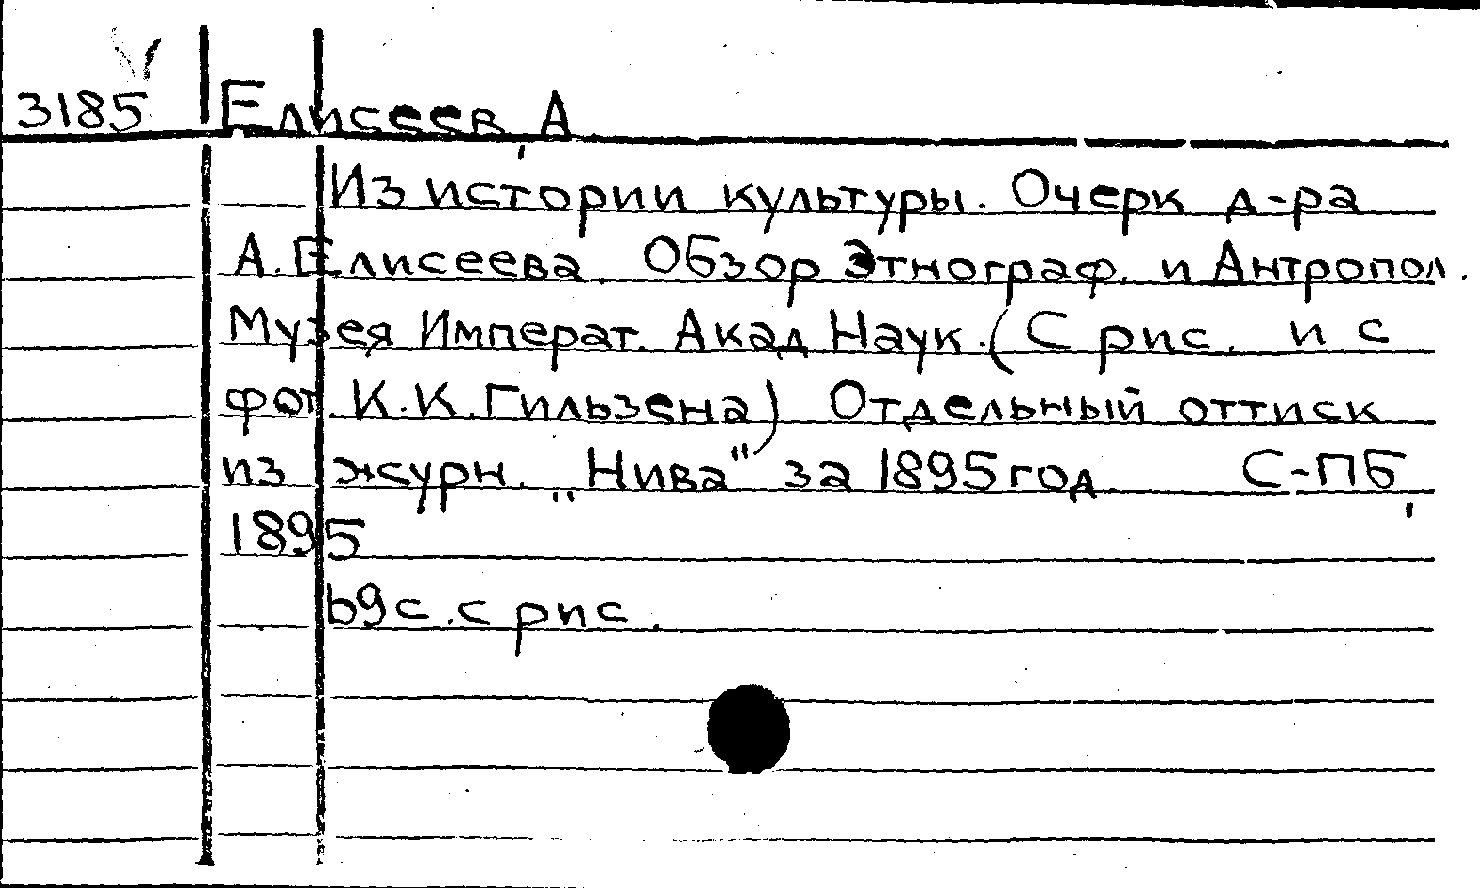 3185 Елисеев, А
Из истории культуры. Очерк д-ра
А. Елисеева. Обзор Этнограф. и Антропол.
Музея Императ. Акад Наук. (С рис. и с
фот. К.К. Гильзена) Отдельный оттиск
из журн. „Нива" за 1895 год С-ПБ,
1895
69 с. с рис.